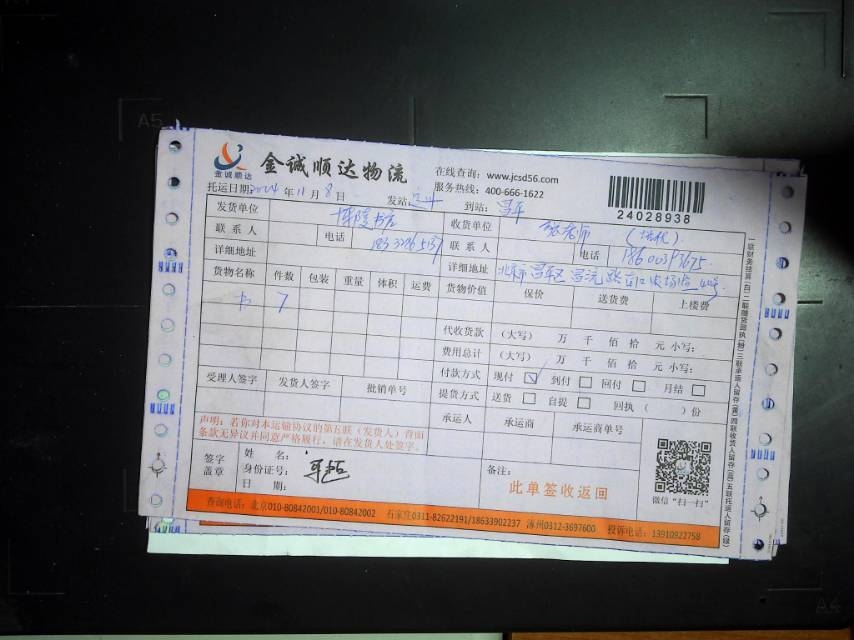 A5
金诚顺达
金诚顺达物流
在线查询：www.jcsd56.com
服务热线：400-666-1622
24028938
托运日期2024年11月8日 发站： 到站：昌平
发货单位 博陵书店 收货单位 老师
联系人 电话 联系人 电话
详细地址 详细地址 北京市昌平区
货物名称 件数 包装 重量 体积 运费 货物价值 保价 送货费 上楼费
书 7
代收货款 （大写） 万 千 佰 拾 元 小写：
费用总计 （大写） 万 千 佰 拾 元 小写：
付款方式 现付 ✓ 到付 回付 月结
受理人签字 发货人签字 批销单号 提货方式 送货 自提 回执（ ）份
承运人 承运商 承运商单号
声明：若你对本运输协议的第五联（发货人）背面
条款无异议并同意严格履行，请在发货人处签字。
签字
盖章
姓 名：
身份证号：
日 期：
备注：
此单签收返回
微信“扫一扫”
查询电话：北京010-80842001/010-80842002 石家庄0311-82622191/18633902237 涿州0312-3697600 投诉电话：13910922758
一联财务结算（白）二联随货回执（粉）三联承运人留存（黄）四联收货人留存（蓝）五联托运人留存（绿）
A4